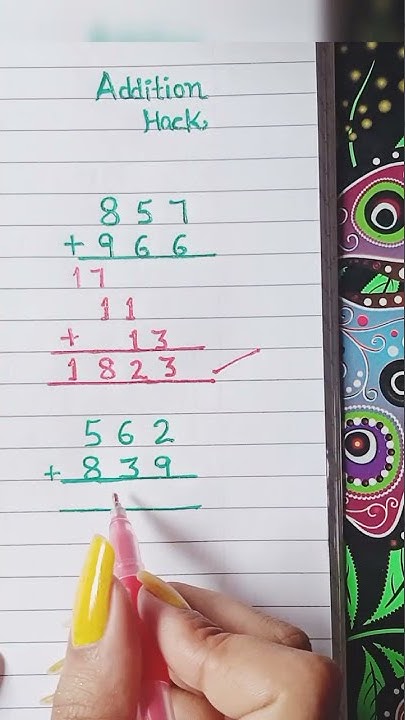 Addition
Hack,
857
+ 966
17
11
+ 13
1823
562
+ 839